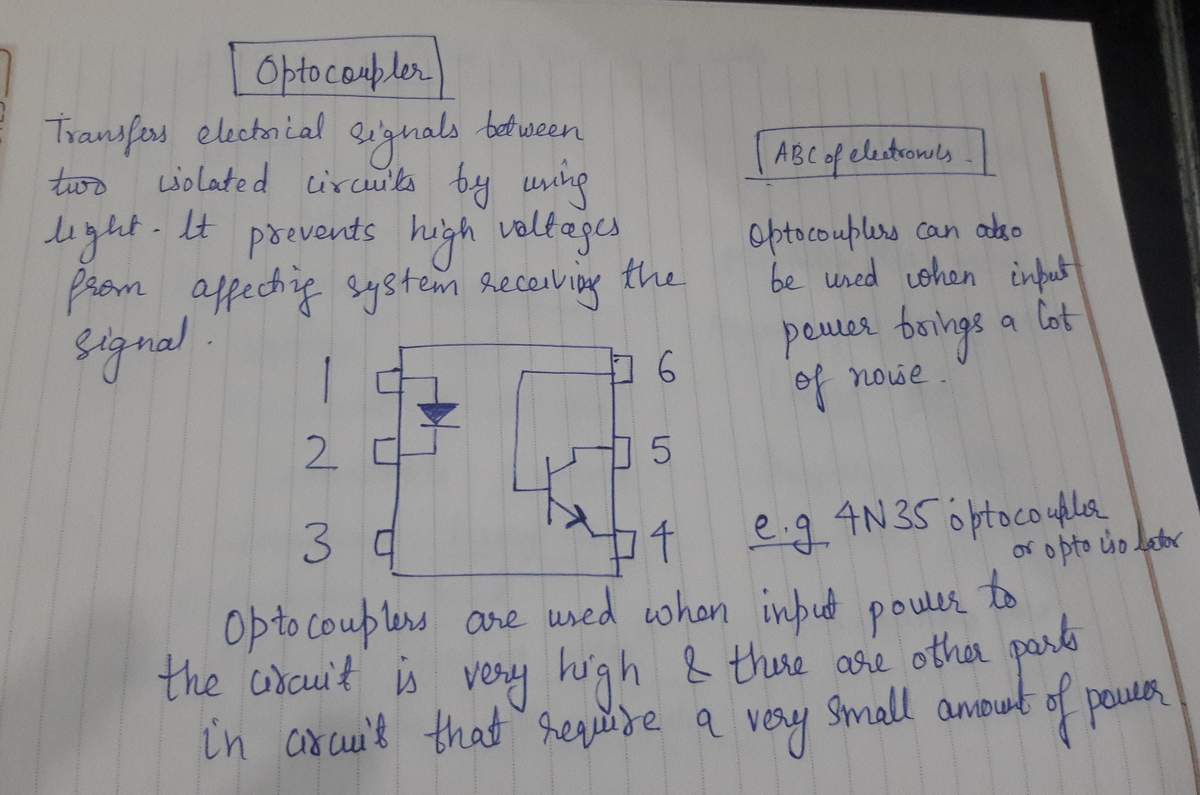 Optocoupler
Transfers electrical signals between
two isolated circuits by using
light. It prevents high voltages
from affecting system receiving the
signal.
ABC of electronics
Optocouplers can also
be used when input
power brings a lot
of noise.
1
2
3
6
5
4
e.g 4N35 optocoupler
or optoisolator
Optocouplers are used when input power to
the circuit is very high & there are other parts
in circuit that require a very small amount of power